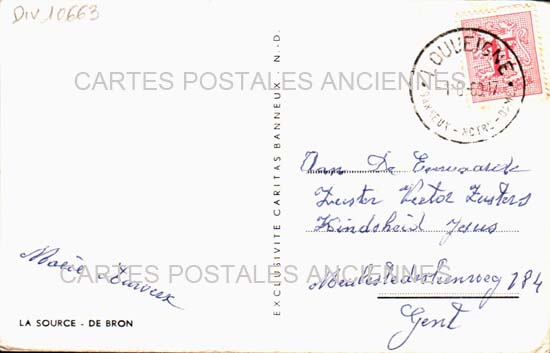 Div 10663
LOUVEIGNÉ
BANNEUX - NOTRE-DAME
CARTES POSTALES ANCIENNES
EXCLUSIVITE CARITAS BANNEUX . N.-D.
Aan De Eerwaarde
Zuster Victor Zusters
Kindsheid Jesus
Meulestedesteenweg 184
Gent
Marie
CARTES POSTALES ANCIENNES
LA SOURCE - DE BRON